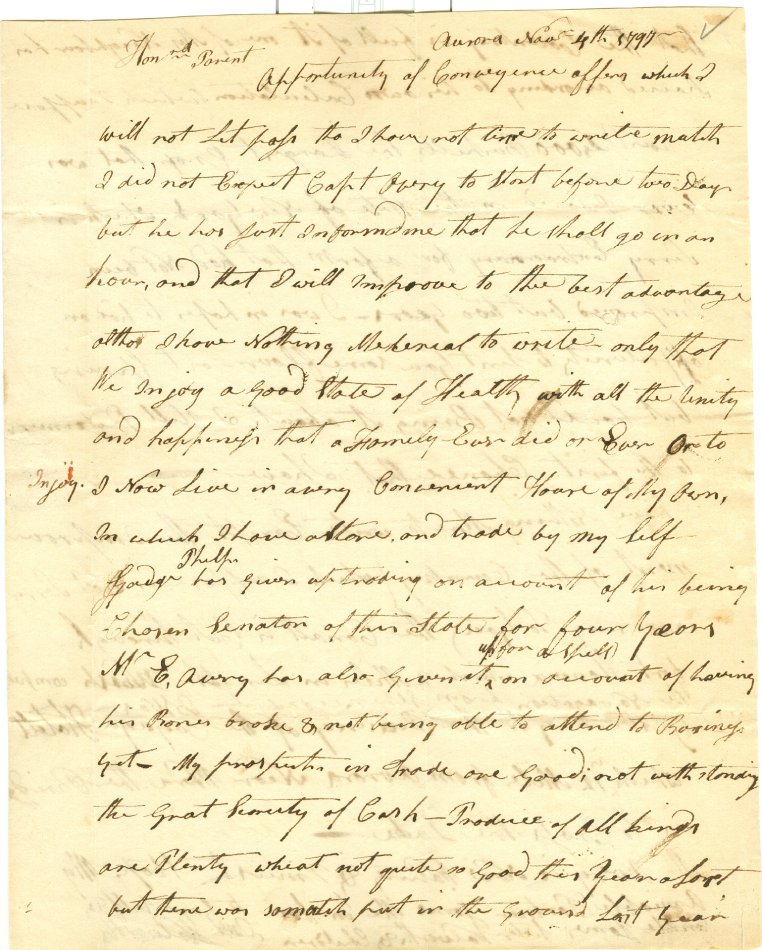 Aurora Novr 4th 1797
Honrd Parent
Opportunity of Conveyence offers which I
will not Let pass tho I have not time to write match
I did not Expect Capt Avery to Start before two Days
but he has Just Informd me that he shall go in an
hour, and that I will Improve to the best advantage
altho I have Nothing Metereal to write only that
We Injoy a Good State of Health with all the Unity
and happiness that a Famely Ever did or Ever Ort to
Injoy.
I Now Live in a very Convenient House of My Own,
in which I have a Store, and trade by my Self
Judge Phelps has given up trading on account of his being
Chosen Senator of this State for four Years
Mr E, Avery has also Given it up for a Spell on account of having
his Bones broke & not being able to attend to Business
Yet — My prospects in trade are Good, not with standing
the Grat Scarcity of Cash — Produce of all kinds
are Plenty wheat not quite so Good this Year a Last
but there was so match put in the Ground Last Year